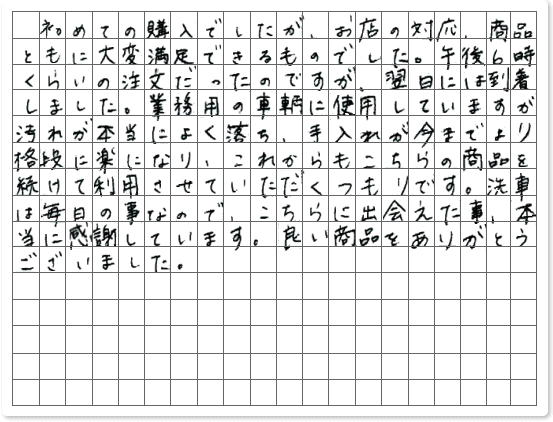 初めての購入でしたが、お店の対応、商品
ともに大変満足できるものでした。午後6時
くらいの注文だったのですが、翌日には到着
しました。業務用の車輌に使用していますが
汚れが本当によく落ち、手入れが今までより
格段に楽になり、これからもこちらの商品を
続けて利用させていただくつもりです。洗車
は毎日の事なので、こちらに出会えた事、本
当に感謝しています。良い商品をありがとう
ございました。